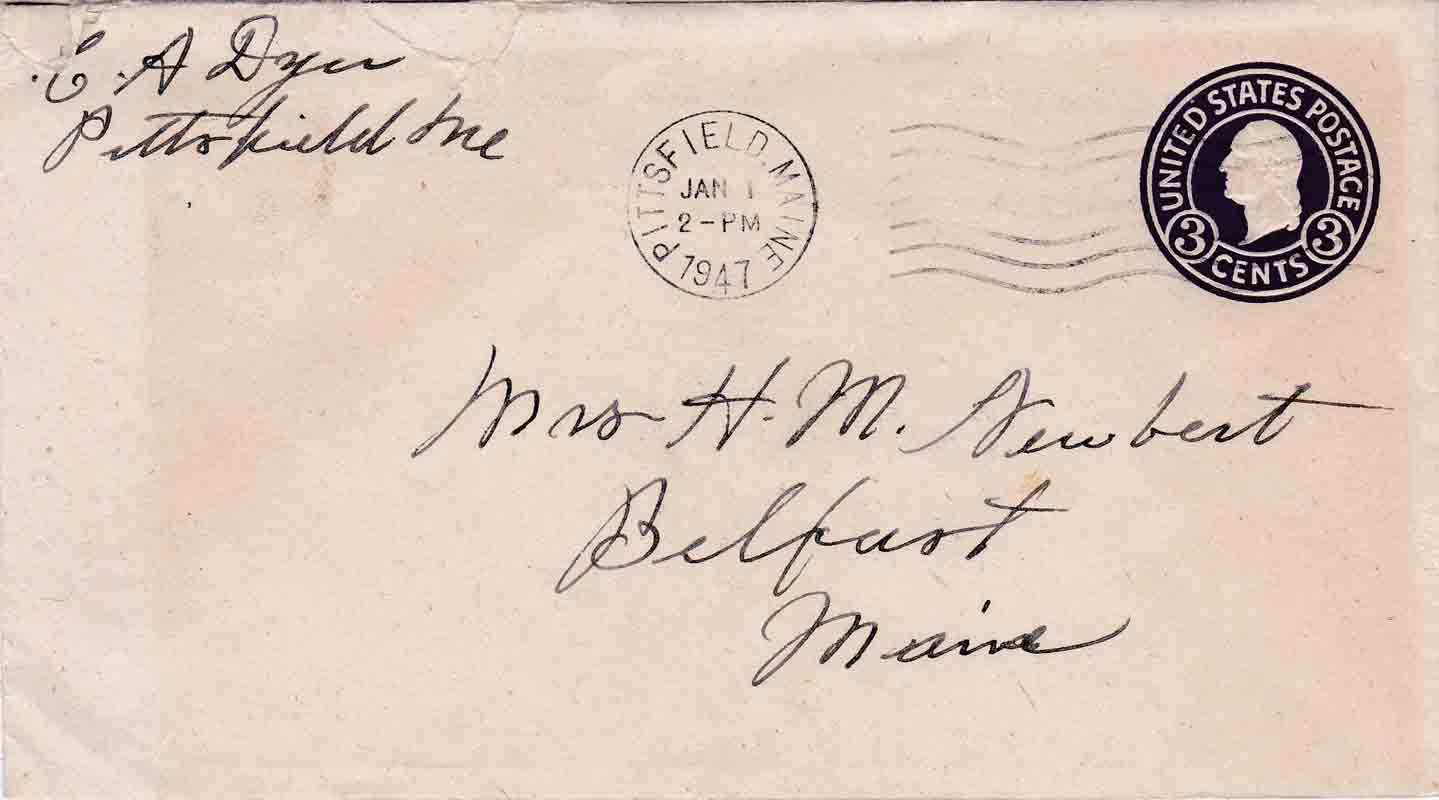 E. A Dyer
Pittsfield Me
PITTSFIELD. MAINE
JAN 1
2-PM
1947
UNITED STATES POSTAGE
3 CENTS 3
Mrs H. M. Newbert
Belfast
Maine